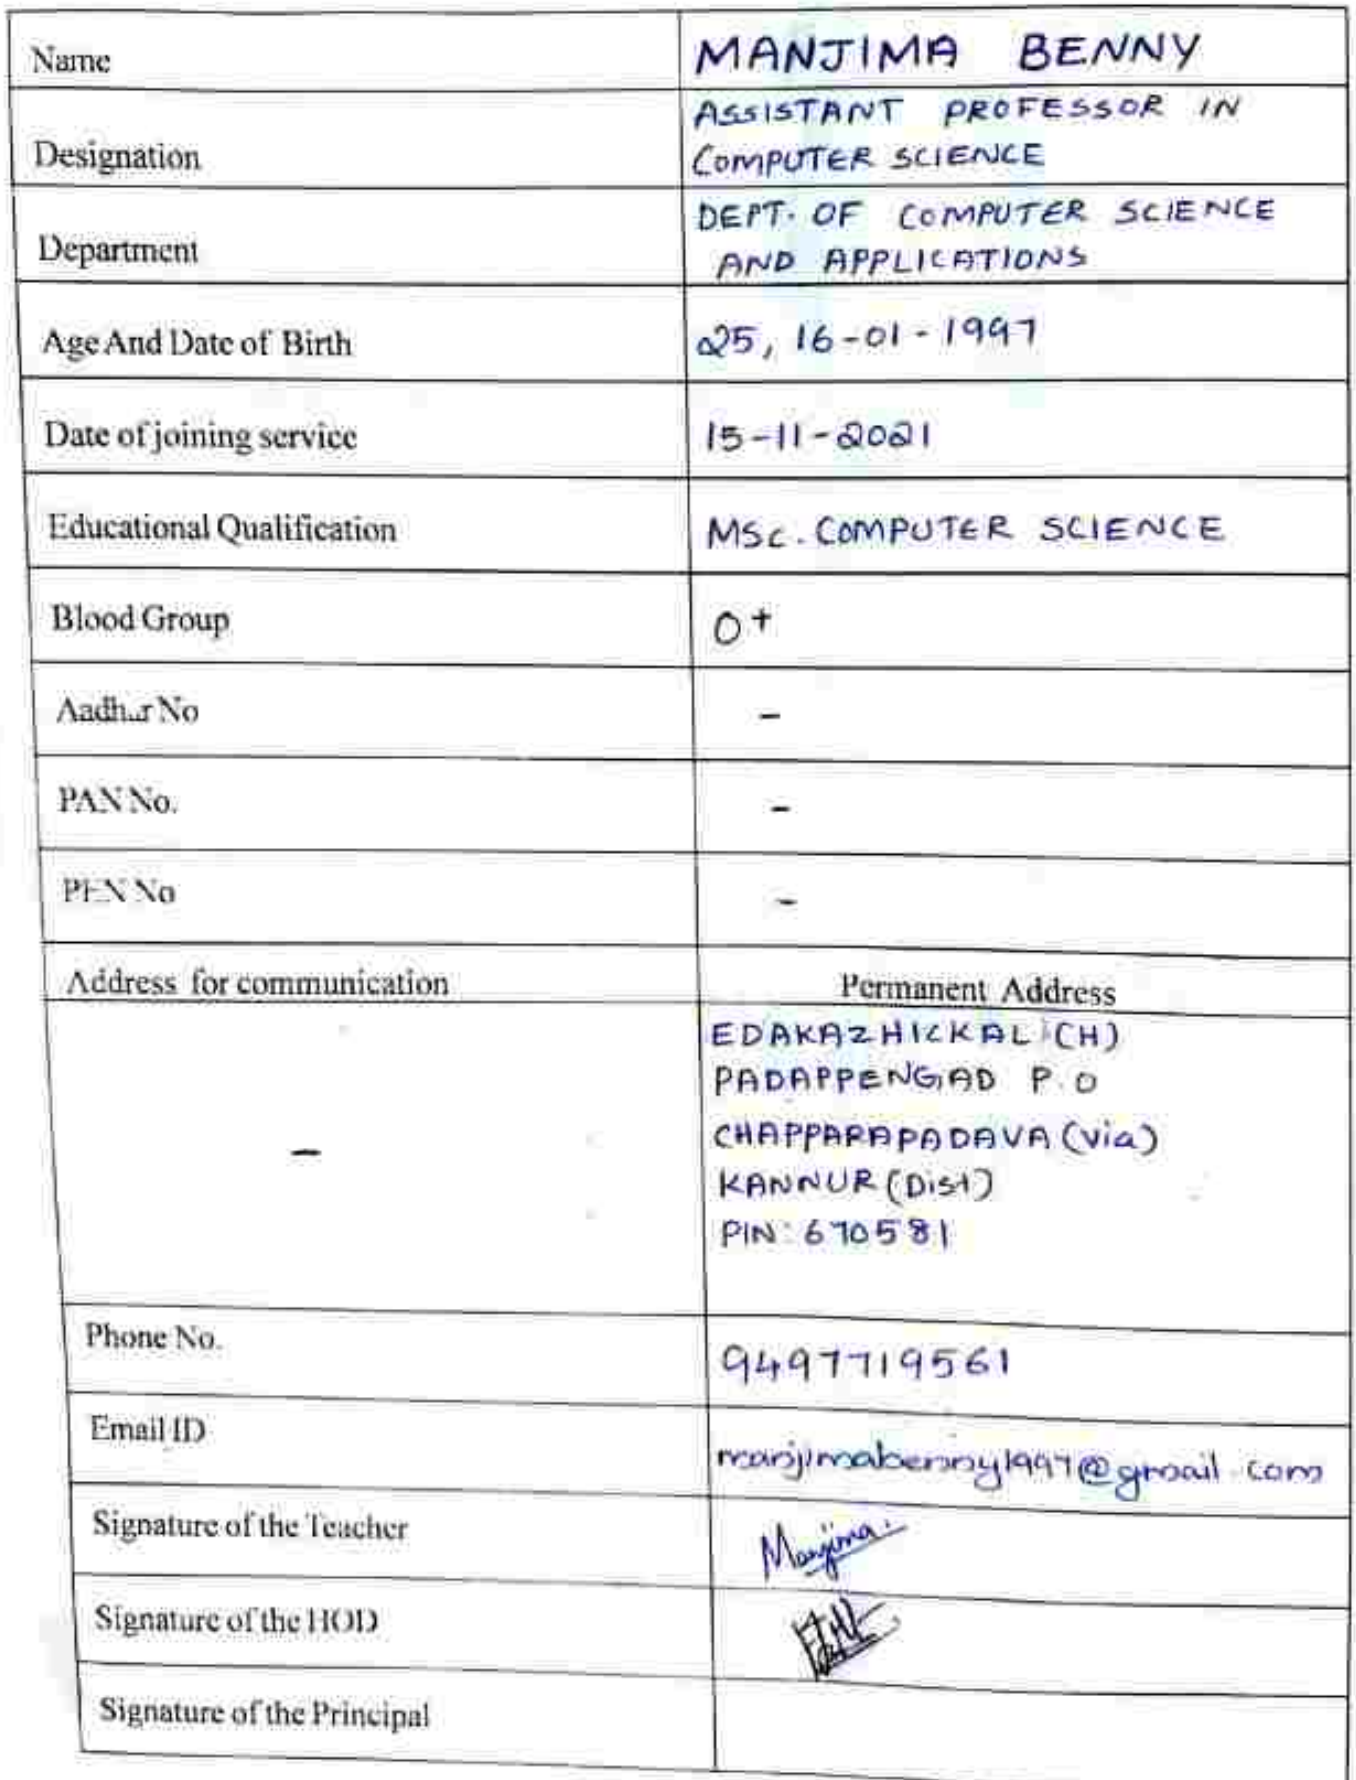 Name MANJIMA BENNY
ASSISTANT PROFESSOR IN
Designation COMPUTER SCIENCE
DEPT. OF COMPUTER SCIENCE
Department AND APPLICATIONS
Age And Date of Birth 25, 16-01-1997
Date of joining service 15-11-2021
Educational Qualification MSc. COMPUTER SCIENCE
Blood Group O+
Aadhar No -
PAN No. -
PEN No -
Address for communication Permanent Address
EDAKAZHICKAL (H)
PADAPPENGAD P.O
- CHAPPARAPADAVA (via)
KANNUR (Dist)
PIN: 670581
Phone No. 9497719561
Email ID manjimabenny1997@gmail.com
Signature of the Teacher Manjima.
Signature of the HOD
Signature of the Principal